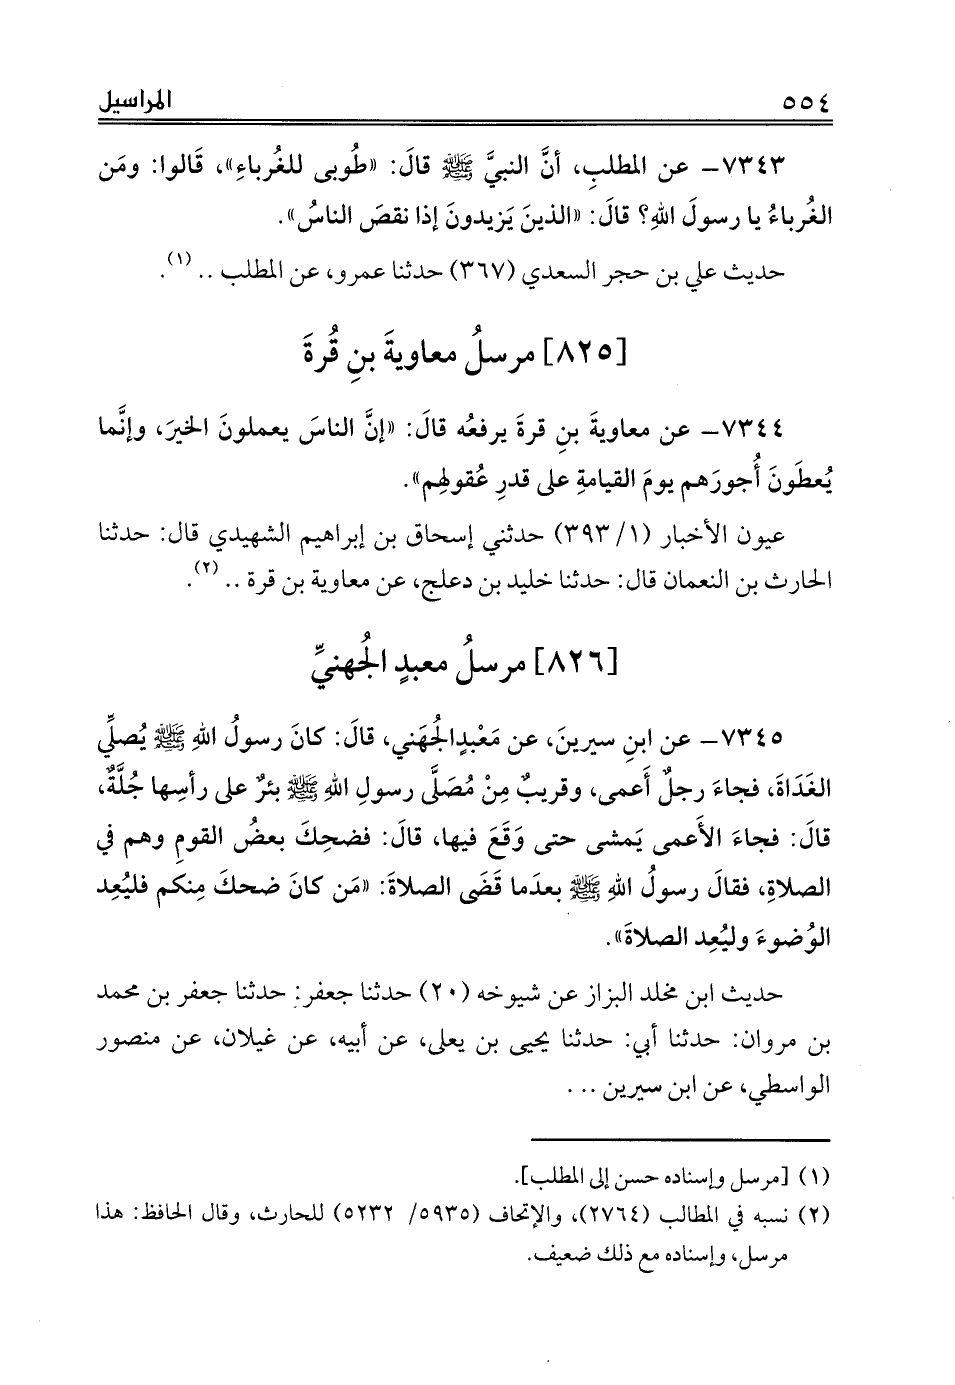 ٥٥٤ المراسيل
٧٣٤٣- عن المطلبِ، أنَّ النبيَّ ﷺ قالَ: «طُوبى للغُرباءِ»، قَالوا: ومَن
الغُرباءُ يا رسولَ اللهِ؟ قالَ: «الذينَ يَزيدونَ إذا نقصَ الناسُ».
حديث علي بن حجر السعدي (٣٦٧) حدثنا عمرو، عن المطلب .. (١).
[٨٢٥] مرسلُ معاويةَ بنِ قُرةَ
٧٣٤٤- عن معاويةَ بنِ قرةَ يرفعُه قالَ: «إنَّ الناسَ يعملونَ الخيرَ، وإنَّما
يُعطَونَ أُجورَهم يومَ القيامةِ على قدرِ عُقولهِم».
عيون الأخبار (١/ ٣٩٣) حدثني إسحاق بن إبراهيم الشهيدي قال: حدثنا
الحارث بن النعمان قال: حدثنا خليد بن دعلج، عن معاوية بن قرة .. (٢).
[٨٢٦] مرسلُ معبدٍ الجُهنيِّ
٧٣٤٥- عن ابنِ سيرينَ، عن مَعْبدِالجُهَني، قالَ: كانَ رسولُ اللهِ ﷺ يُصلِّي
الغَدَاةَ، فجاءَ رجلٌ أَعمى، وقريبٌ مِنْ مُصَلَّى رسولِ اللهِ ﷺ بئرٌ على رأسِها جُلَّةٌ،
قالَ: فجاءَ الأَعمى يَمشى حتى وَقَعَ فيها، قالَ: فضحِكَ بعضُ القومِ وهم في
الصلاةِ، فقالَ رسولُ اللهِ ﷺ بعدَما قَضَى الصلاةَ: «مَن كانَ ضحكَ مِنكم فليُعِد
الوُضوءَ وليُعِد الصلاةَ».
حديث ابن مخلد البزاز عن شيوخه (٢٠) حدثنا جعفر: حدثنا جعفر بن محمد
بن مروان: حدثنا أبي: حدثنا يحيى بن يعلى، عن أبيه، عن غيلان، عن منصور
الواسطي، عن ابن سيرين ...
(١) [مرسل وإسناده حسن إلى المطلب].
(٢) نسبه في المطالب (٢٧٦٤)، والإتحاف (٥٩٣٥/ ٥٢٣٢) للحارث، وقال الحافظ: هذا
مرسل، وإسناده مع ذلك ضعيف.